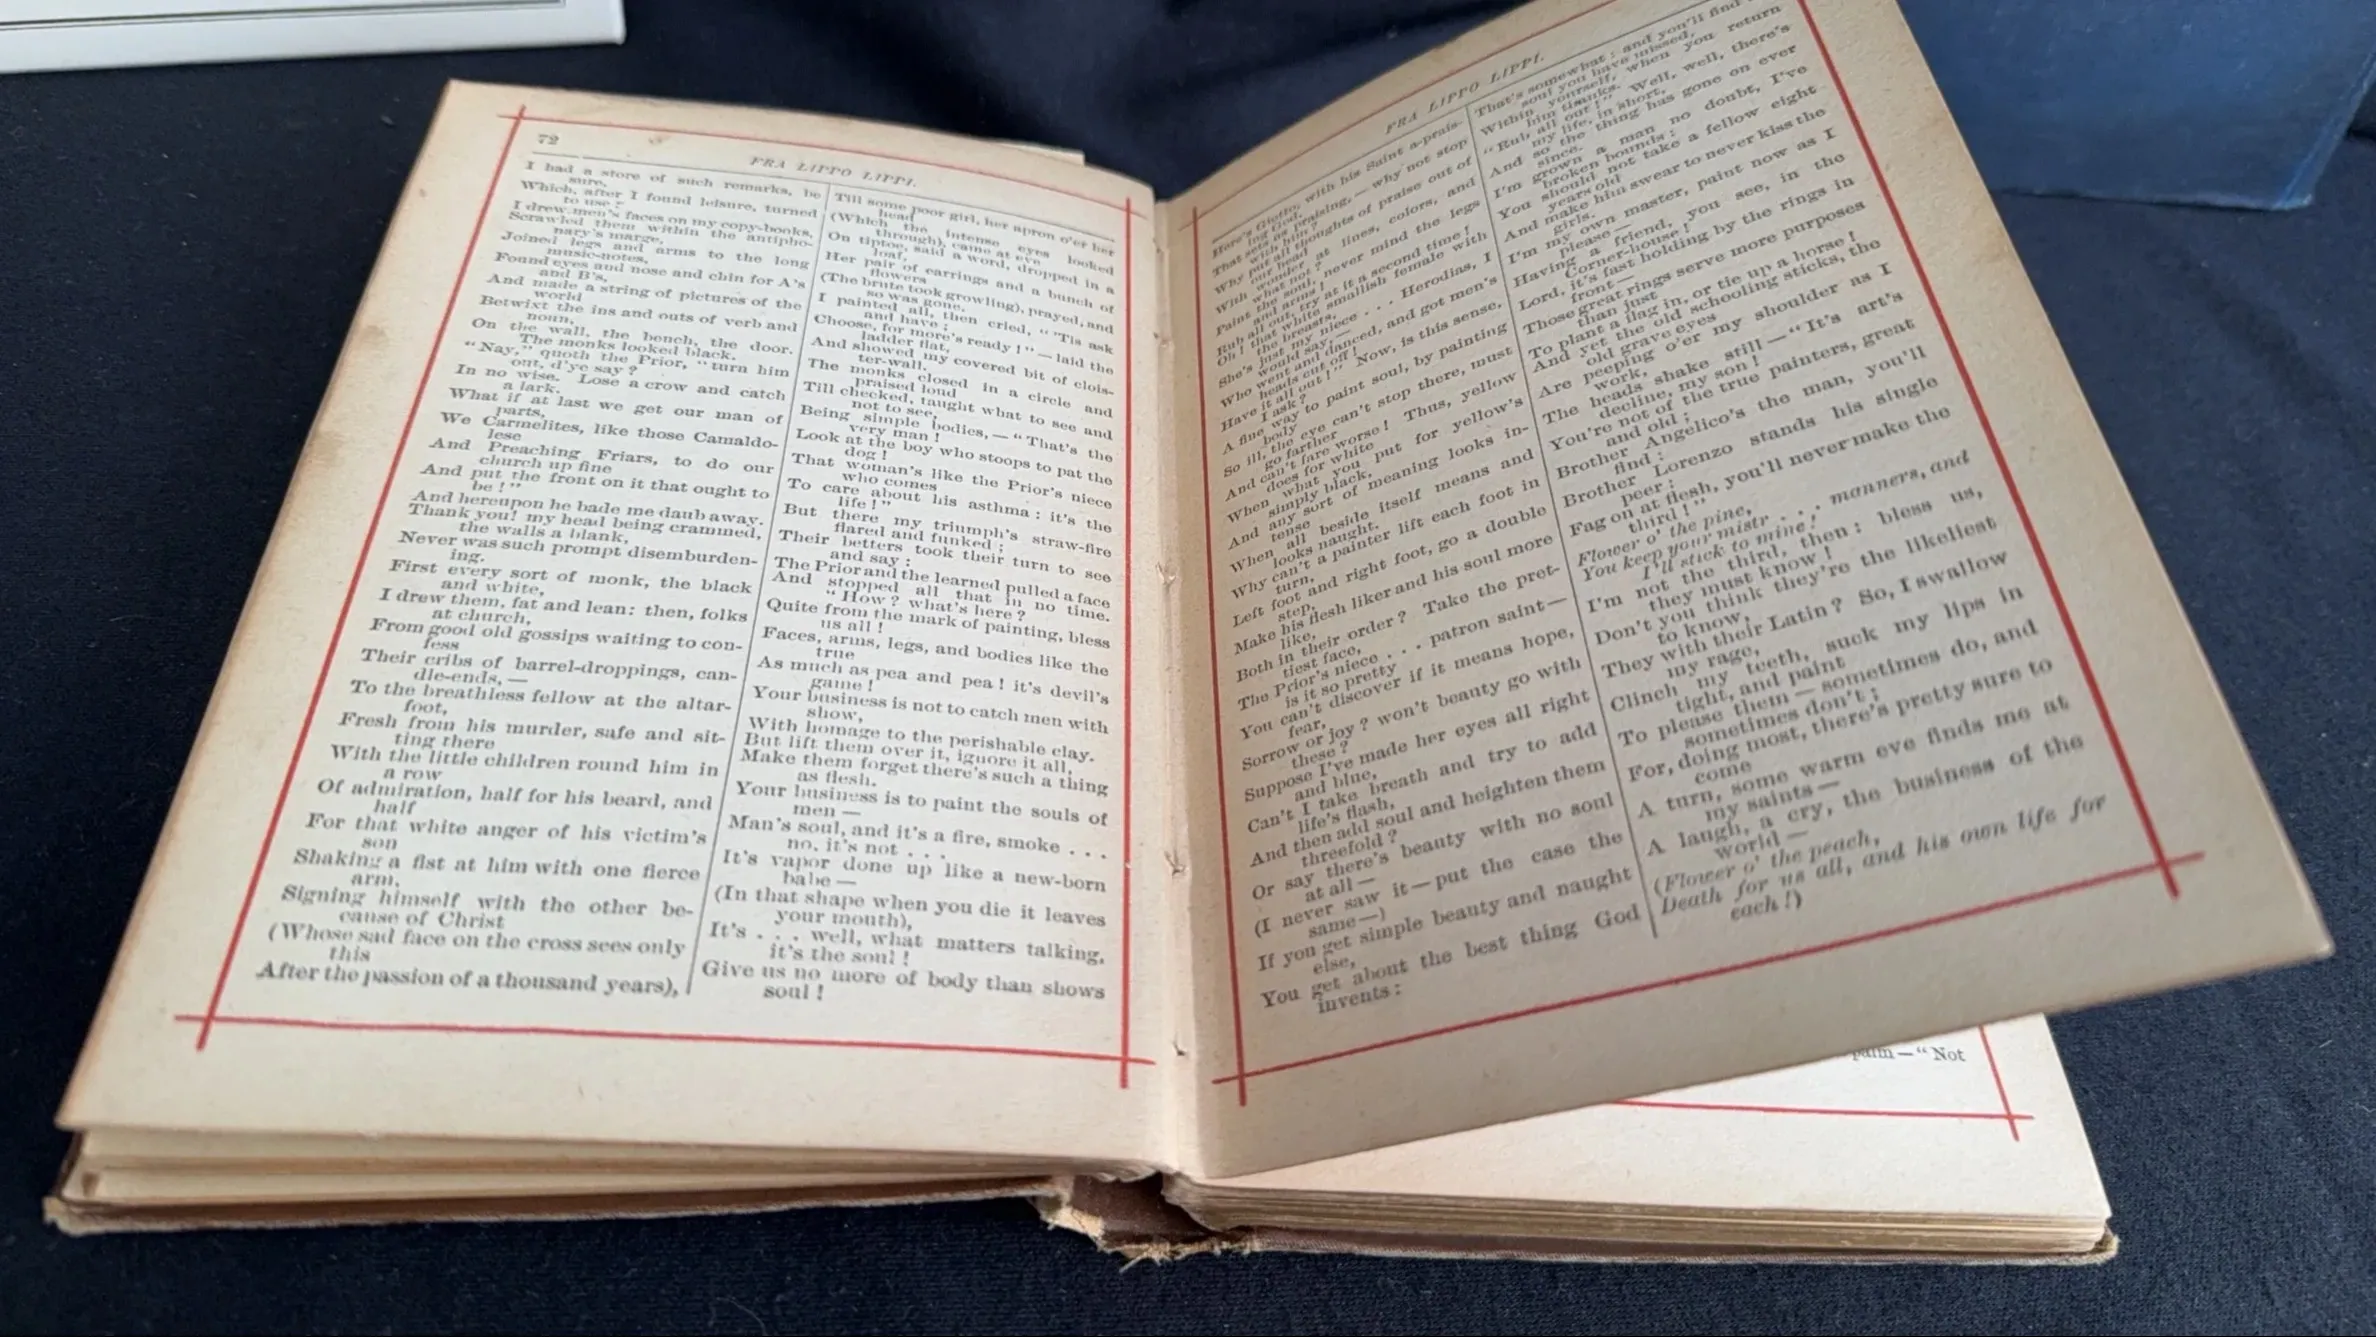 72
FRA LIPPO LIPPI.
I had a store of such remarks, be
sure,
Which, after I found leisure, turned
to use:
I drew men's faces on my copy-books,
Scrawled them within the antipho-
nary's marge,
Joined legs and arms to the long
music-notes,
Found eyes and nose and chin for A's
and B's,
And made a string of pictures of the
world
Betwixt the ins and outs of verb and
noun,
On the wall, the bench, the door.
The monks looked black.
"Nay," quoth the Prior, "turn him
out, d'ye say?
In no wise. Lose a crow and catch
a lark.
What if at last we get our man of
parts,
We Carmelites, like those Camaldo-
lese
And Preaching Friars, to do our
church up fine
And put the front on it that ought to
be!"
And hereupon he bade me daub away.
Thank you! my head being crammed,
the walls a blank,
Never was such prompt disemburden-
ing.
First every sort of monk, the black
and white,
I drew them, fat and lean: then, folks
at church,
From good old gossips waiting to con-
fess
Their cribs of barrel-droppings, can-
dle-ends,—
To the breathless fellow at the altar-
foot,
Fresh from his murder, safe and sit-
ting there
With the little children round him in
a row
Of admiration, half for his beard, and
half
For that white anger of his victim's
son
Shaking a fist at him with one fierce
arm,
Signing himself with the other be-
cause of Christ
(Whose sad face on the cross sees only
this
After the passion of a thousand years),
Till some poor girl, her apron o'er her
head
(Which the intense eyes looked
through), came at eve
On tiptoe, said a word, dropped in a
loaf,
Her pair of earrings and a bunch of
flowers
(The brute took growling), prayed, and
so was gone.
I painted all, then cried, "'Tis ask
and have;
Choose, for more's ready!"—laid the
ladder flat,
And showed my covered bit of clois-
ter-wall.
The monks closed in a circle and
praised loud
Till checked, taught what to see and
not to see,
Being simple bodies,—"That's the
very man!
Look at the boy who stoops to pat the
dog!
That woman's like the Prior's niece
who comes
To care about his asthma: it's the
life!"
But there my triumph's straw-fire
flared and funked;
Their betters took their turn to see
and say:
The Prior and the learned pulled a face
And stopped all that in no time.
"How? what's here?
Quite from the mark of painting, bless
us all!
Faces, arms, legs, and bodies like the
true
As much as pea and pea! it's devil's
game!
Your business is not to catch men with
show,
With homage to the perishable clay,
But lift them over it, ignore it all,
Make them forget there's such a thing
as flesh.
Your business is to paint the souls of
men—
Man's soul, and it's a fire, smoke . . .
no, it's not . . .
It's vapor done up like a new-born
babe—
(In that shape when you die it leaves
your mouth),
It's . . . well, what matters talking,
it's the soul!
Give us no more of body than shows
soul!
FRA LIPPO LIPPI.
Here's Giotto, with his Saint a-prais-
ing God,
That sets us praising,—why not stop
with him?
Why put all thoughts of praise out of
our head
With wonder at lines, colors, and
what not?
Paint the soul, never mind the legs
and arms!
Rub all out, try at it a second time!
Oh! that white smallish female with
the breasts,
She's just my niece . . . Herodias, I
would say,—
Who went and danced, and got men's
heads cut off!
Have it all out!" Now, is this sense,
I ask?
A fine way to paint soul, by painting
body
So ill, the eye can't stop there, must
go farther
And can't fare worse! Thus, yellow
does for white
When what you put for yellow's
simply black,
And any sort of meaning looks in-
tense
When all beside itself means and
looks naught.
Why can't a painter lift each foot in
turn,
Left foot and right foot, go a double
step,
Make his flesh liker and his soul more
like,
Both in their order? Take the pret-
tiest face,
The Prior's niece . . . patron saint—
is it so pretty
You can't discover if it means hope,
fear,
Sorrow or joy? won't beauty go with
these?
Suppose I've made her eyes all right
and blue,
Can't I take breath and try to add
life's flash,
And then add soul and heighten them
threefold?
Or say there's beauty with no soul
at all—
(I never saw it—put the case the
same—)
If you get simple beauty and naught
else,
You get about the best thing God
invents:
That's somewhat: and you'll find
soul you have missed,
Within yourself, when you return
him thanks.
"Rub all out!" Well, well, there's
my life, in short,
And so the thing has gone on ever
since.
I'm grown a man no doubt, I've
broken bounds:
You should not take a fellow eight
years old
And make him swear to never kiss the
girls.
I'm my own master, paint now as I
please—
Having a friend, you see, in the
Corner-house!
Lord, it's fast holding by the rings in
front—
Those great rings serve more purposes
than just
To plant a flag in, or tie up a horse!
And yet the old schooling sticks, the
old grave eyes
Are peeping o'er my shoulder as I
work,
The heads shake still—"It's art's
decline, my son!
You're not of the true painters, great
and old;
Brother Angelico's the man, you'll
find;
Brother Lorenzo stands his single
peer:
Fag on at flesh, you'll never make the
third!"
Flower o' the pine,
You keep your mistr . . . manners, and
I'll stick to mine!
I'm not the third, then: bless us,
they must know!
Don't you think they're the likeliest
to know,
They with their Latin? So, I swallow
my rage,
Clinch my teeth, suck my lips in
tight, and paint
To please them—sometimes do, and
sometimes don't;
For, doing most, there's pretty sure to
come
A turn, some warm eve finds me at
my saints—
A laugh, a cry, the business of the
world—
(Flower o' the peach,
Death for us all, and his own life for
each!)
palm—"Not